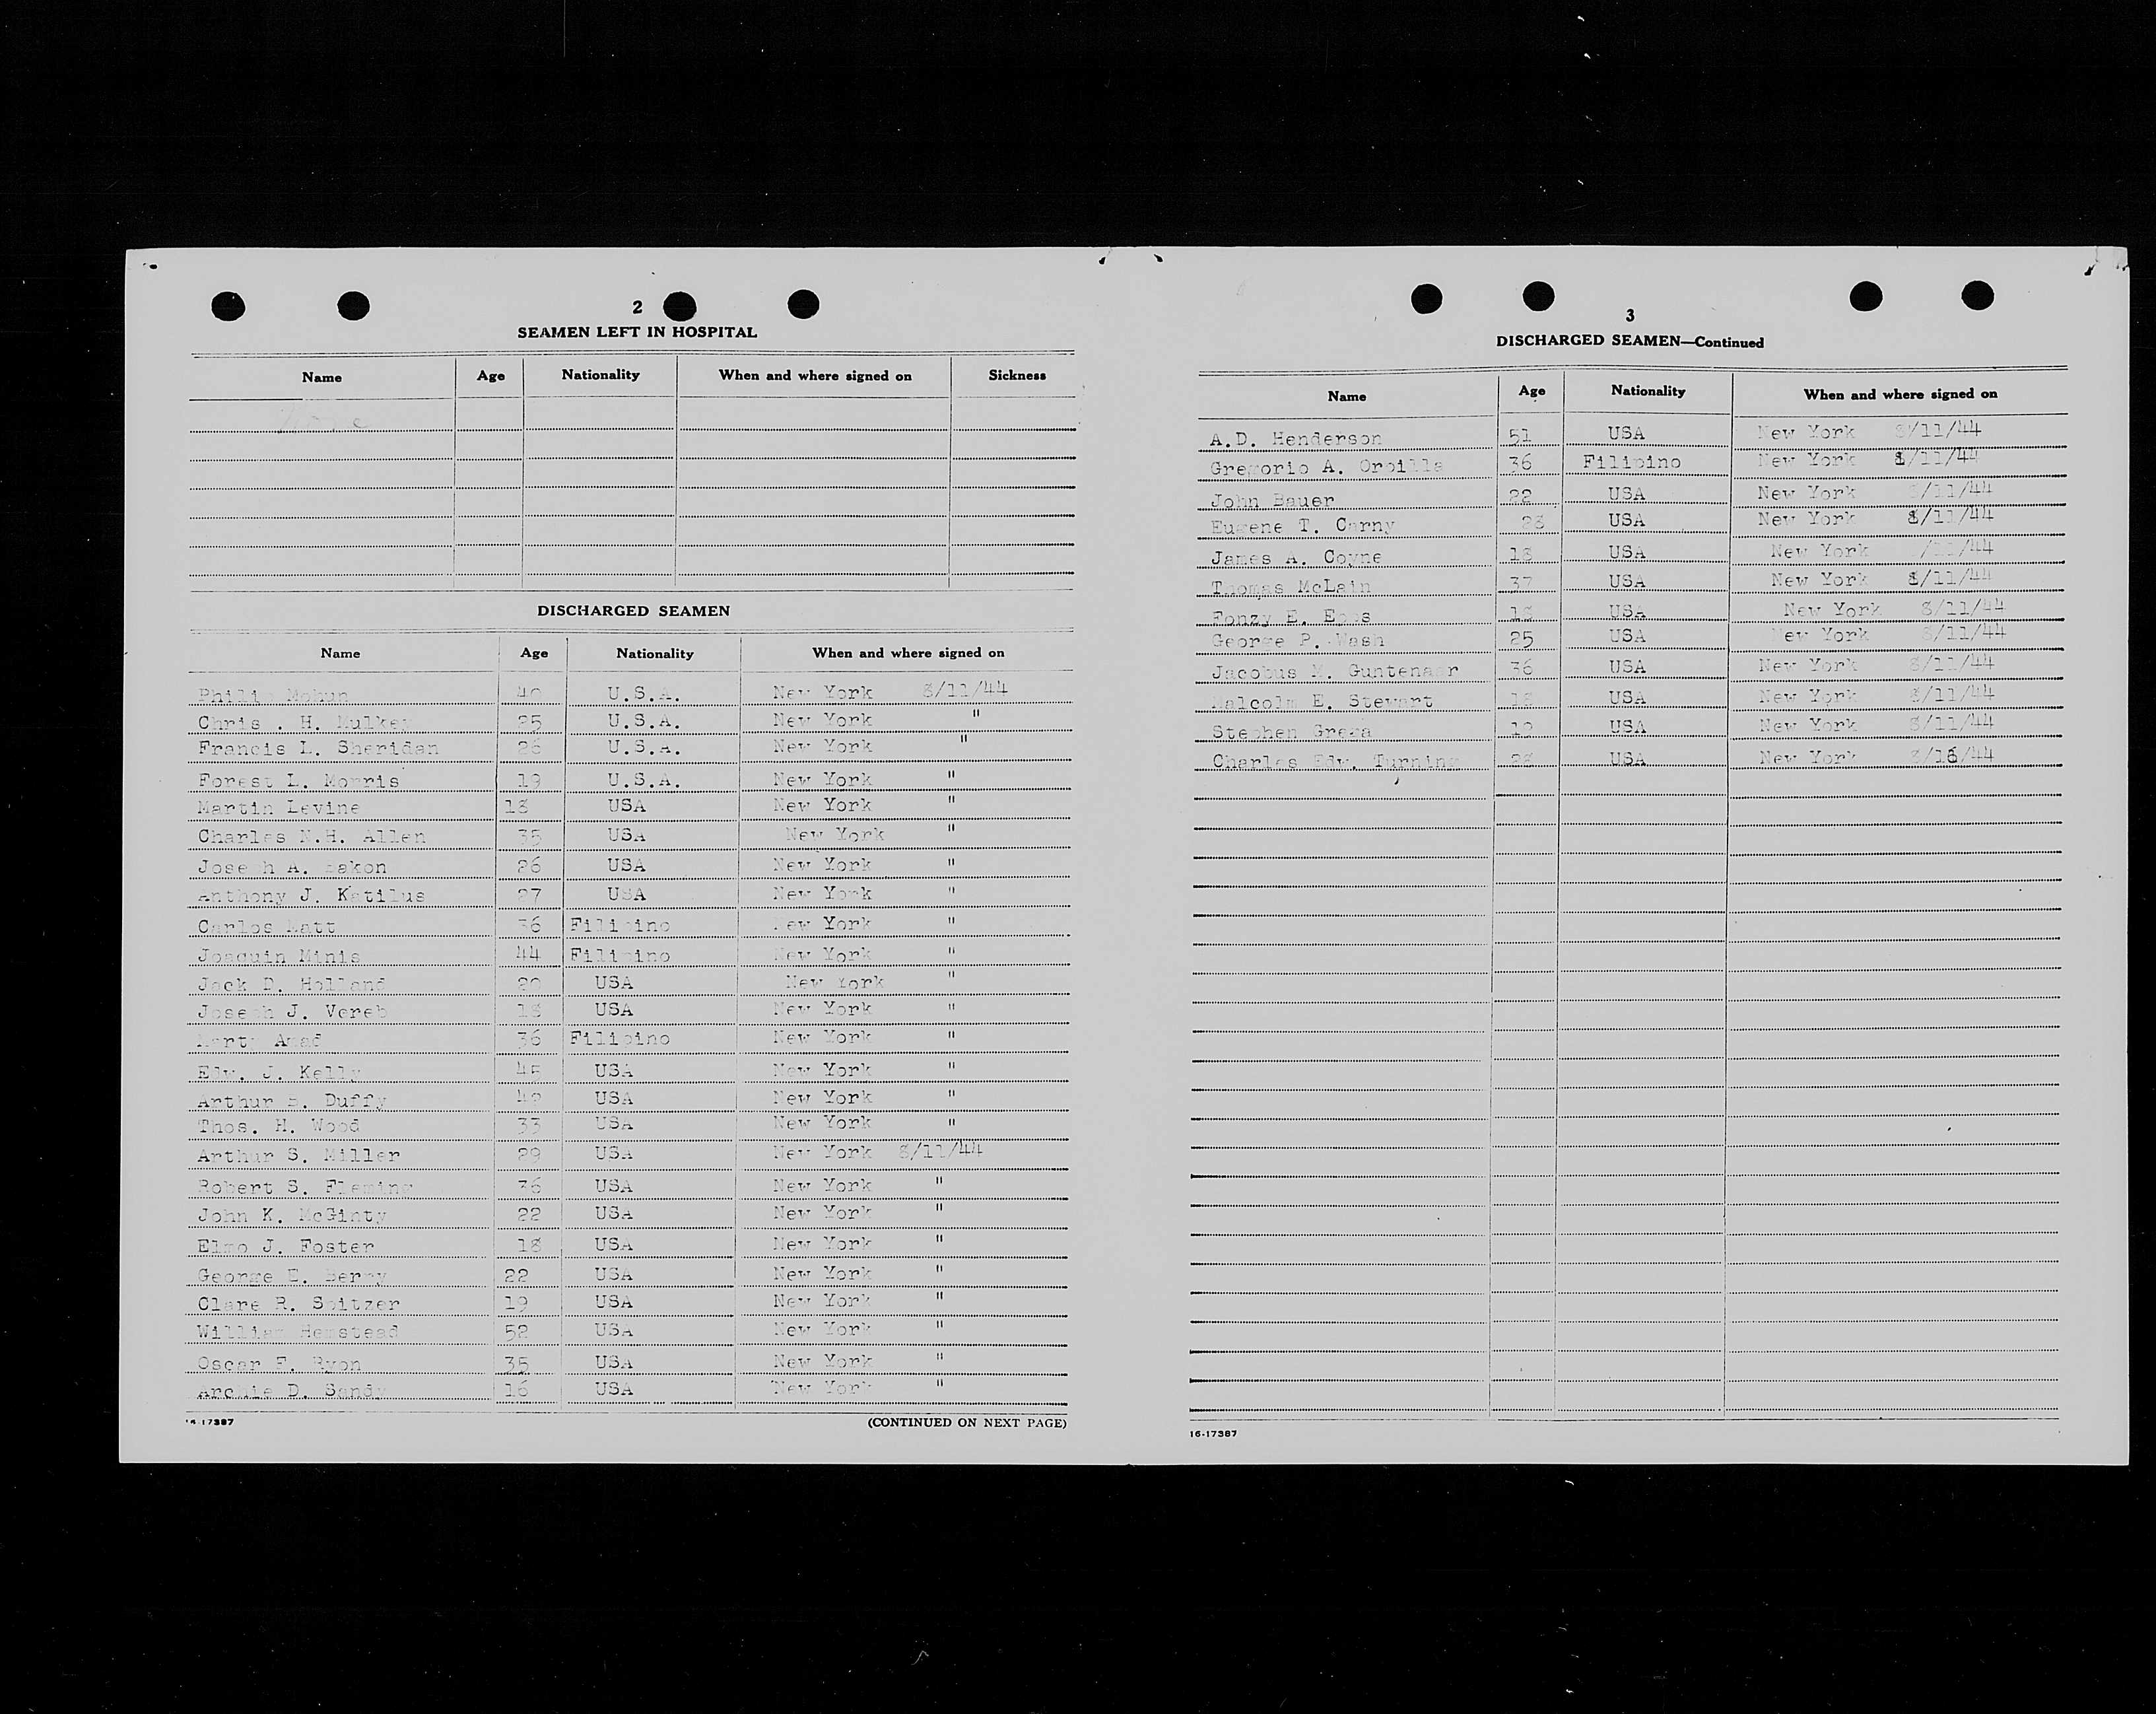 2
SEAMEN LEFT IN HOSPITAL
Name Age Nationality When and where signed on Sickness
None
DISCHARGED SEAMEN
Name Age Nationality When and where signed on
Philip Mohun U.S.A. New York 8/11/44
Chris . H. Mulkey 25 U.S.A. New York "
Francis L. Sheridan 26 U.S.A. New York "
Forest L. Morris 19 U.S.A. New York "
Martin Levine 18 USA New York "
Charles N.H. Allen 35 USA New York "
Joseph A. 26 USA New York "
Anthony J. Katilus 27 USA New York "
Carlos 36 Filipino New York "
Joaquin Minis 44 Filipino New York "
Jack D. Holland USA New York "
Joseph J. Vereb 18 USA New York "
36 Filipino New York "
Edw. J. Kelly 45 USA New York "
Arthur Duffy USA New York "
Thos. H. Wood 33 USA New York "
Arthur S. Miller 29 USA New York 8/11/44
Robert S. Fleming 36 USA New York "
John K. McGinty 22 USA New York "
Elmo J. Foster 18 USA New York "
George E. Berry 22 USA New York "
Clare R. Spitzer 19 USA New York "
William Hempstead 52 USA New York "
Oscar F. Ryon 35 USA New York "
Archie D. Sandy 16 USA New York "
16-17387 (CONTINUED ON NEXT PAGE)
3
DISCHARGED SEAMEN—Continued
Name Age Nationality When and where signed on
A.D. Henderson 51 USA New York 8/11/44
Gregorio A. Orpilla 36 Filipino New York 8/11/44
John Bauer 22 USA New York 8/11/44
Eugene T. Carny 28 USA New York 8/11/44
James A. Coyne 18 USA New York 8/11/44
Thomas McLain 37 USA New York 8/11/44
Fonzy E. Epps 18 USA New York 8/11/44
George P. Wash 25 USA New York 8/11/44
Jacobus M. Guntenaar 36 USA New York 8/11/44
Malcolm E. Stewart 18 USA New York 8/11/44
Stephen Grega 19 USA New York 8/11/44
Charles Edw. Turning 28 USA New York 8/16/44
16-17387